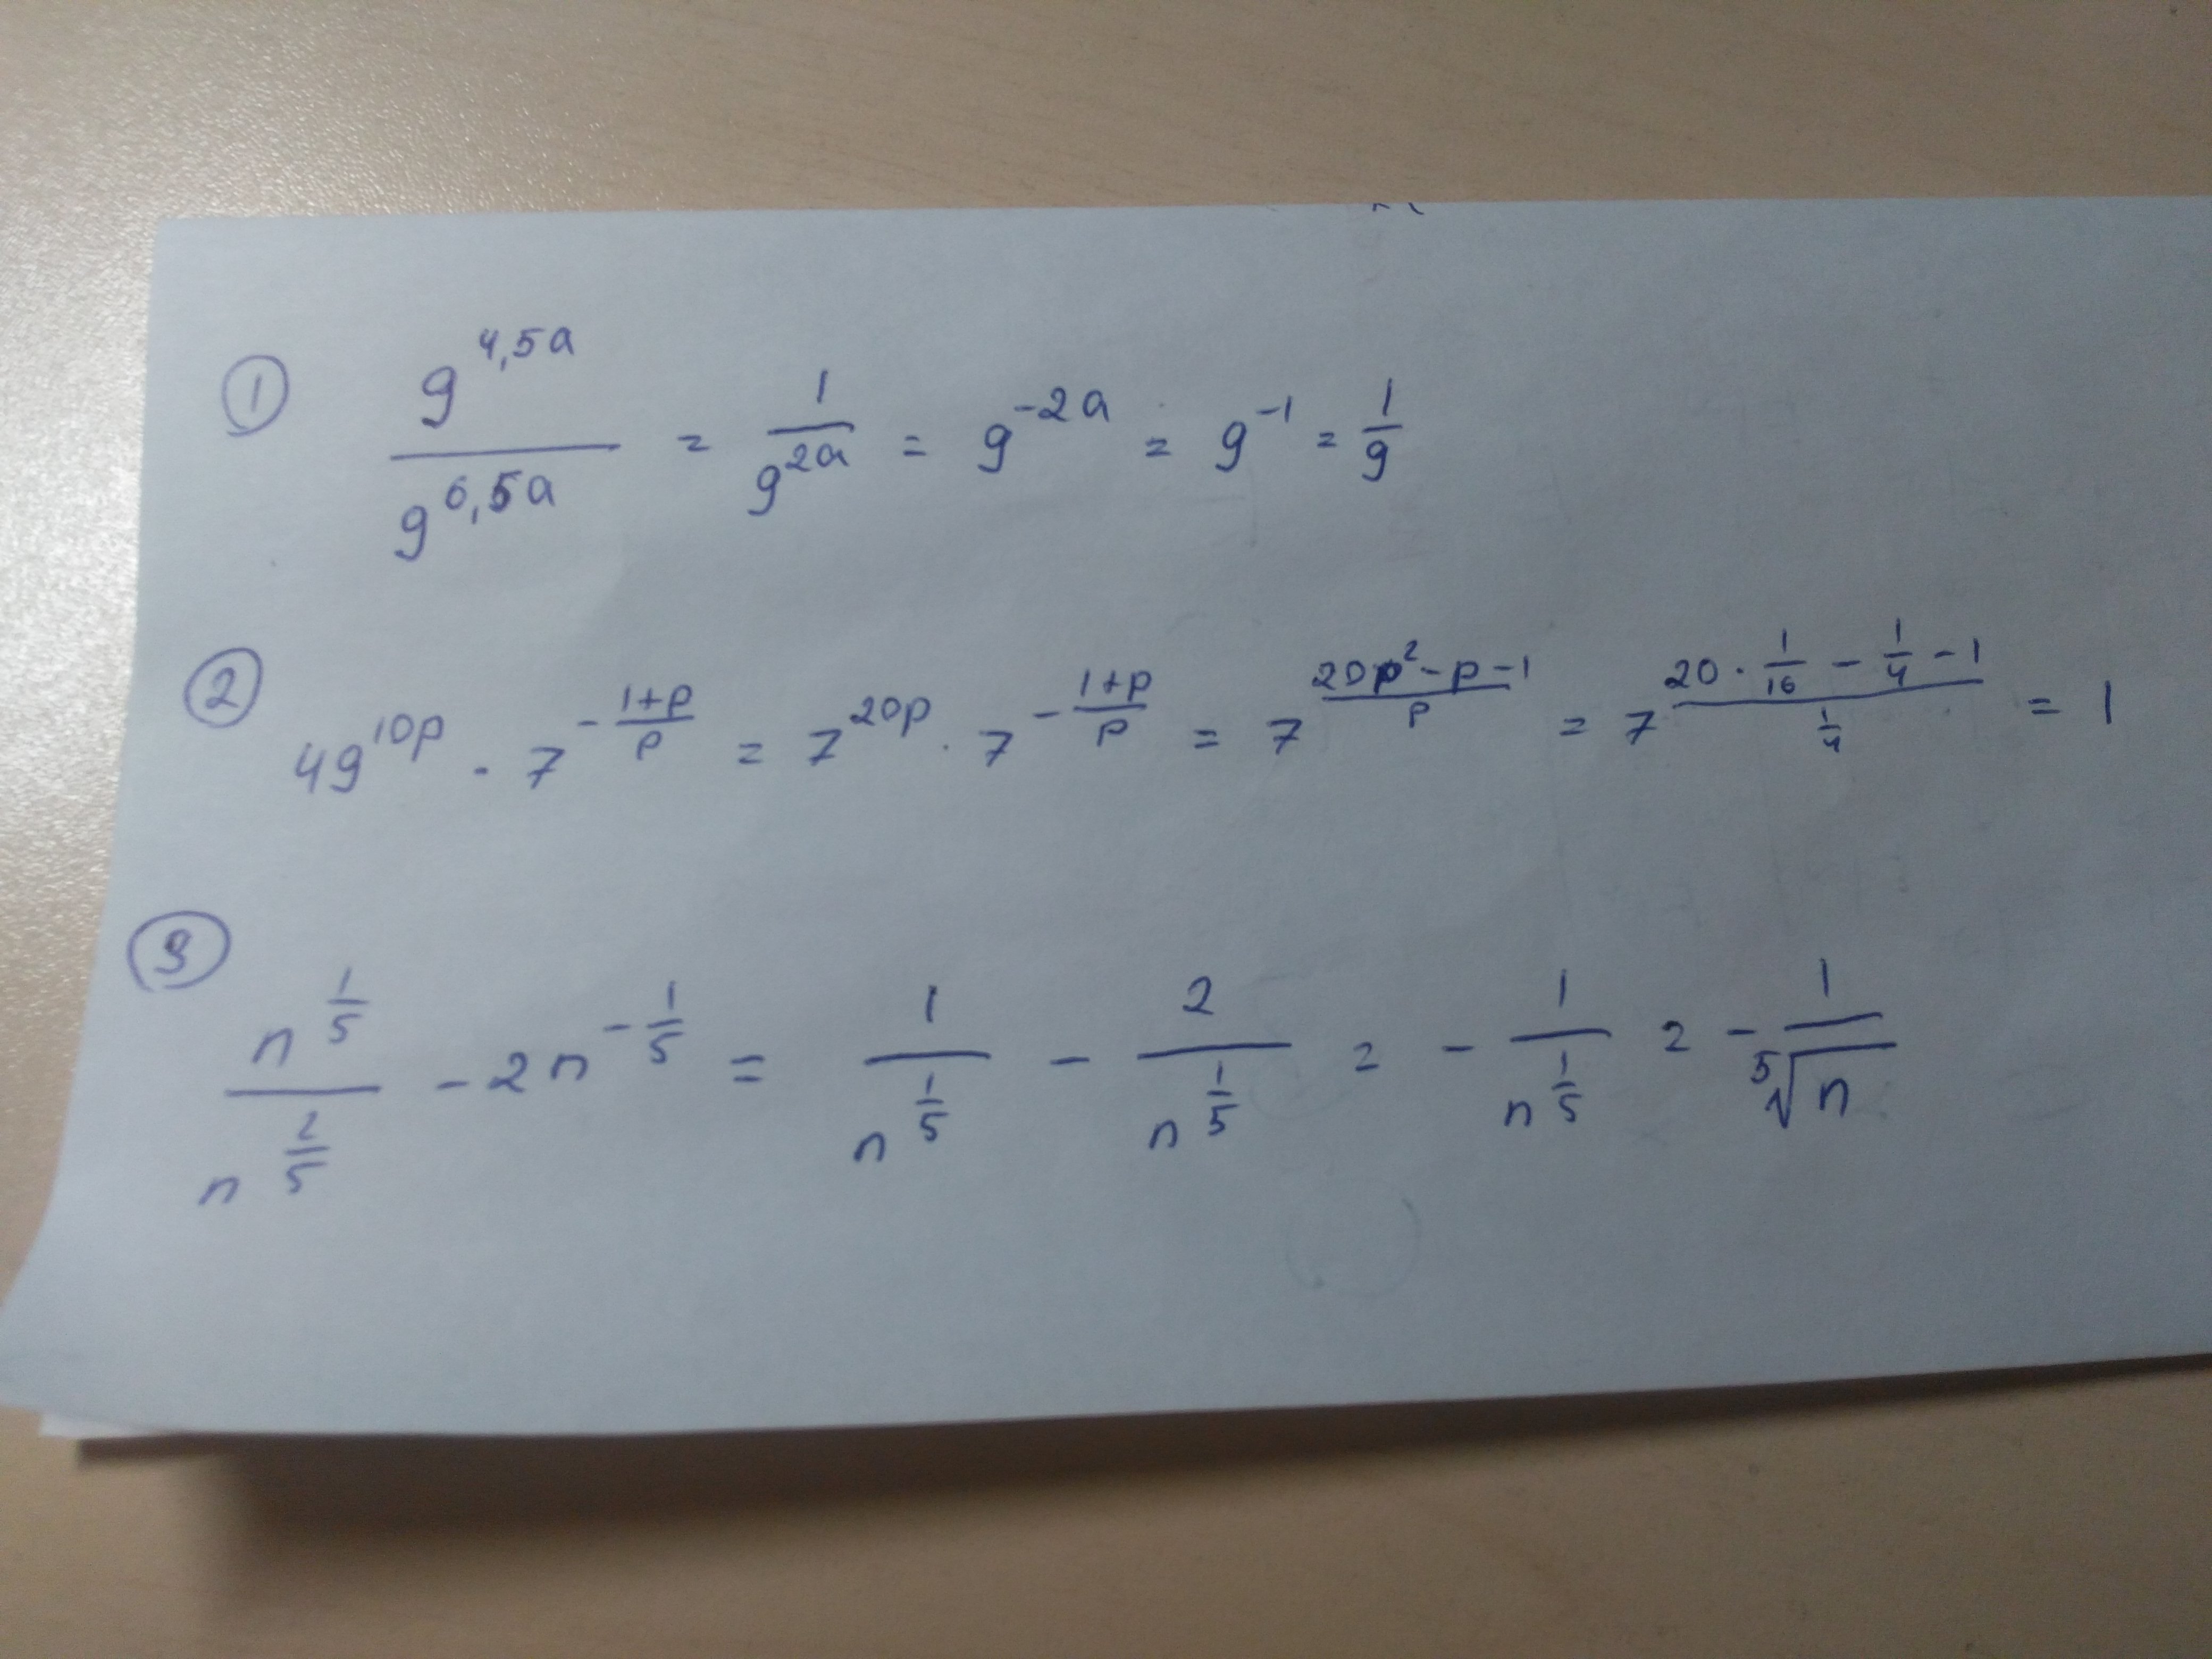 ① 9^{4,5a} / 9^{6,5a} = 1 / 9^{2a} = 9^{-2a} = 9^{-1} = 1/9
② 49^{10p} · 7^{-(1+p)/p} = 7^{20p} · 7^{-(1+p)/p} = 7^{(20p²-p-1)/p} = 7^{(20·1/16 - 1/4 - 1)/(1/4)} = 1
③ n^{1/5} / n^{2/5} - 2n^{-1/5} = 1 / n^{1/5} - 2 / n^{1/5} = - 1 / n^{1/5} = - 1 / ⁵√n